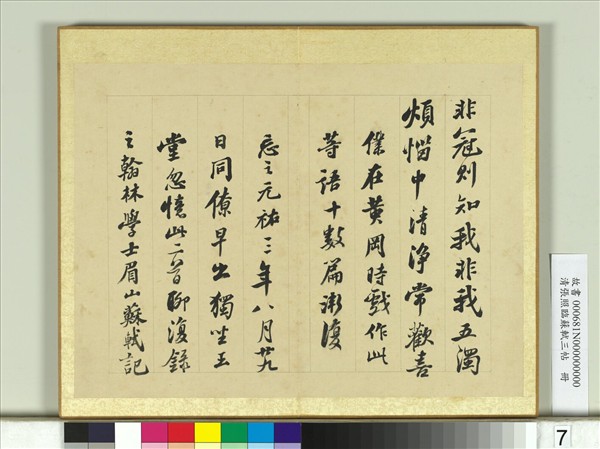 非冠則知我非我五濁
煩惱中清淨常歡喜
僕在黃岡時戲作此
等語十數篇漸復
忘之元祐三年八月廿九
日同僚早出獨坐玉
堂忽憶此二首聊復錄
之翰林學士眉山蘇軾記
故書000681N000000000
清張照臨蘇軾三帖 冊
7